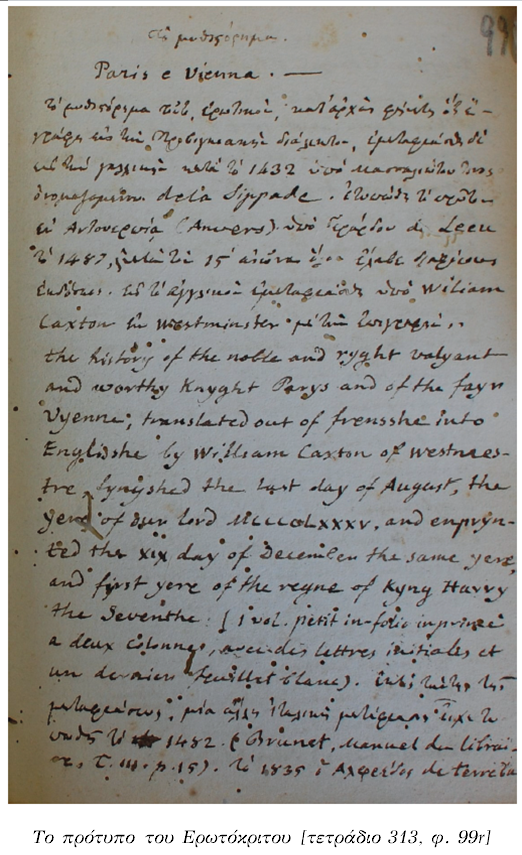 τὸ μυθιστόρημα.
99
Paris e Vienna. —
τὸ μυθιστόριμα τοῦτο, ἐρωτικὸν, κατ' ἀρχὰς
εἰς τὴν διάλεκτον, ἐμεταφράσθη δὲ
εἰς τὴν γαλλικὴν κατὰ τὸ 1432 ὑπὸ
ὀνομαζομένου de la Sippade. ἐτυπώθη τὸ πρῶτον
εἰς (Anvers) ὑπὸ Γεράρδου de Leeu
τὸ 1487, τὸν 15 αἰῶνα ἔλαβε
ἐκδόσεις. εἰς τὸ ἀγγλικὸν ἐμεταφράσθη ὑπὸ William
Caxton ἐν Westminster μὲ τὴν ἐπιγραφὴν ,,
the history of the noble and ryght valyant
and worthy Knyght Parys and of the fayr
Vyenne; translated out of frensshe into
Englisshe by William Caxton of westmes-
tre, fynyshed the last day of August, the
yere of our lord MCCCCLXXXV, and enpryn-
ted the XIX day of December the same yere,
and first yere of the regne of Kyng Harry
the Seventhe: (1 vol. petit in-folio imprimé
a deux colonnes, avec des lettres initiales et
un dernier feuillet blanc). ταύτης τῆς
μεταφράσεως, μία ἄλλη
τὸ 1482. (Brunet, manuel du librai-
re, T. III. p. 15). τὸ 1835 ὁ Ἀλφρέδος de terreba
Το πρότυπο του Ερωτόκριτου [τετράδιο 313, φ. 99r]